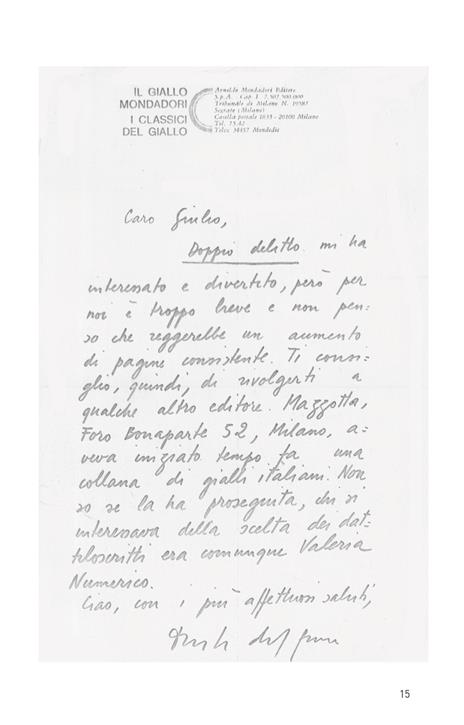 IL GIALLO
MONDADORI
I CLASSICI
DEL GIALLO
Arnoldo Mondadori Editore
S.p.A. Cap. L.
Tribunale di Milano N.
Segrate (Milano)
Casella postale 1833 - 20100 Milano
Tel. 75.42
Telex 34457 Mondedit
Caro Giulio,
Doppio delitto mi ha
interessato e divertito, però per
noi è troppo breve e non pen=
so che reggerebbe un aumento
di pagine consistente. Ti consi=
glio, quindi, di rivolgerti a
qualche altro editore. Mazzotta,
Foro Bonaparte 52, Milano, a=
veva iniziato tempo fa una
collana di gialli italiani. Non
so se la ha proseguita, chi si
interessava della scelta dei dat=
tiloscritti era comunque Valeria
Numerico.
Ciao, con i più affettuosi saluti,
15